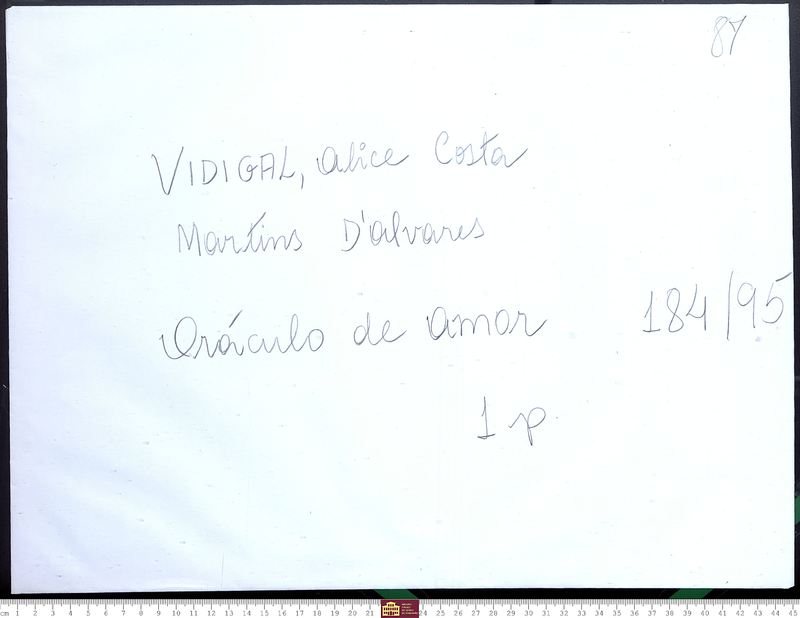 87
VIDIGAL, Alice Costa
Martins D'alvares
Oráculo de amor
184/95
1 p.
cm 1 2 3 4 5 6 7 8 9 10 11 12 13 14 15 16 17 18 19 20 21 24 25 26 27 28 29 30 31 32 33 34 35 36 37 38 39 40 41 42 43 44 45